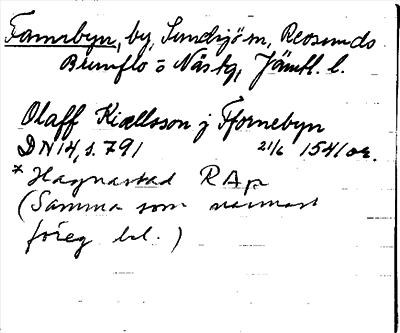 Fannbyn, by, Sundsjö sn, Revsunds
Brunflo o Näs tg, Jämtl. l.
Olaff Kiællsson j Ffornebyn
DN 14, s. 791 21/6 1541 or.
* Hagnastad RAp
(Samma som närmast
föreg bl.)